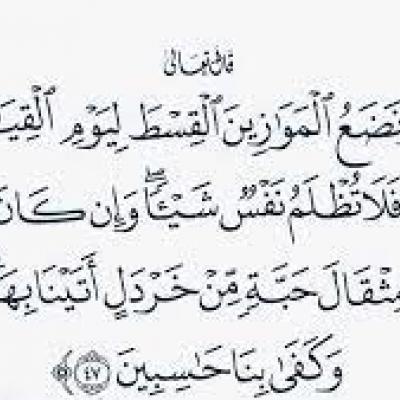 قال تعالى
نَضَعُ الْمَوَازِينَ الْقِسْطَ لِيَوْمِ الْقِيَا
فَلَا تُظْلَمُ نَفْسٌ شَيْـًٔا ۖ وَإِن كَانَ
مِثْقَالَ حَبَّةٍ مِّنْ خَرْدَلٍ أَتَيْنَا بِهَا
وَكَفَىٰ بِنَا حَاسِبِينَ ﴿٤٧﴾